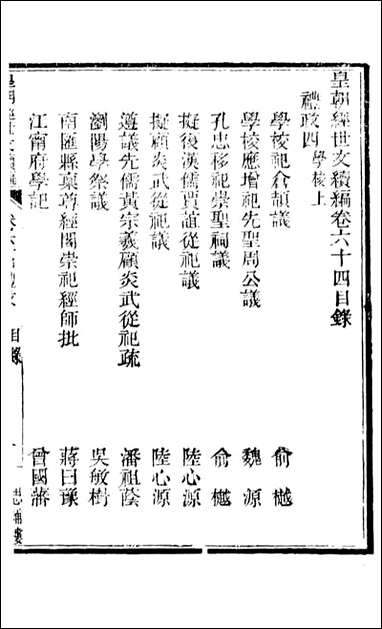 皇朝經世文續編卷六十四目錄
禮政四 學校上
學校祀倉頡議 俞樾
學校應增祀先聖周公議 魏源
孔忠移祀崇聖祠議 俞樾
擬後漢儒賈誼從祀議 陸心源
擬顧炎武從祀議 陸心源
遵議先儒黃宗羲顧炎武從祀疏 潘祖蔭
瀏陽學祭議 吳敏樹
南匯縣稟尊經閣崇祀經師批 蔣曰豫
江甯府學記 曾國藩
皇朝經世文續編 卷六十四 目錄 一 思補樓